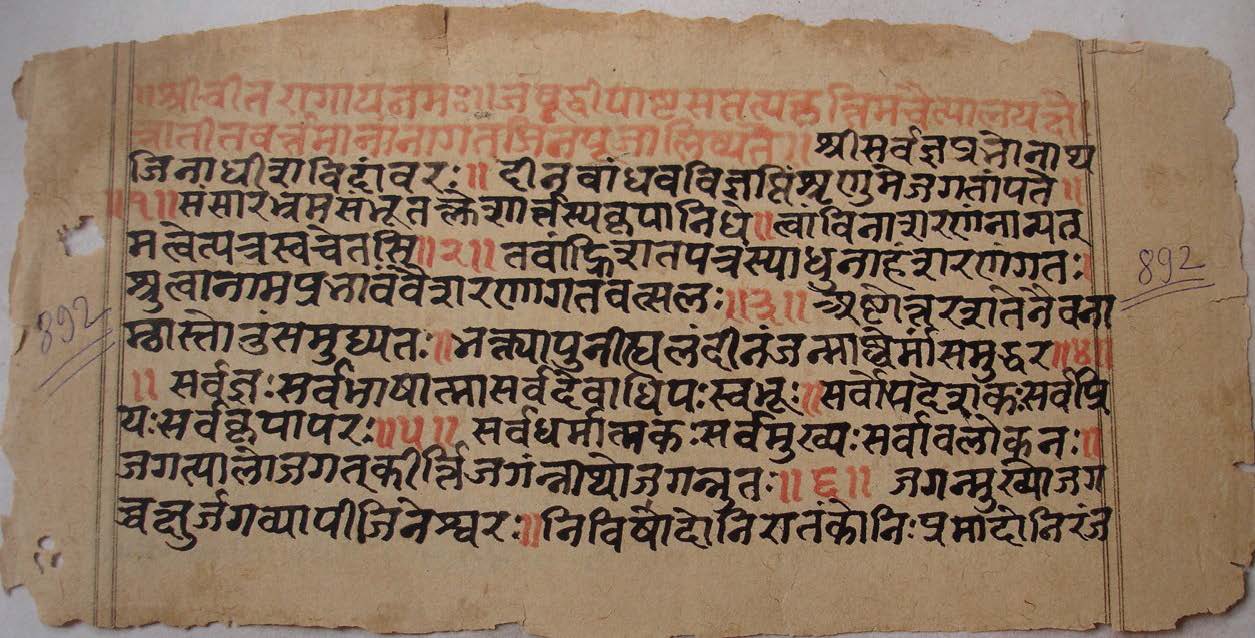 ॥श्रीवीतरागायनमः॥जंबूद्वीपाष्टसप्तत्यकृत्रिमचैत्यालयस्थे
वातीतवर्त्तमानानागतजिनपूजालिष्यते॥ श्रीसर्वज्ञप्रभोनाथ
जिनाधीशविदांवरः॥ दीनबांधवविज्ञप्तिंशृणुमेजगतांपते॥
॥१॥संसारभ्रमसंभूतक्लेशार्त्तस्यकृपानिधे॥त्वांविनाशरणंनान्यत्
मत्वेत्यत्रस्वचेतसि॥२॥ तवांह्रिशतपत्रस्याधुनाहंशरणंगतः॥
श्रुत्वानामप्रभावंवैशरणागतवत्सलः॥३॥ अष्टोत्तरशतेनैवना
म्नास्तोतुंसमुद्यतः॥भक्त्यापुनीह्यलंदीनंजन्माब्धेर्मांसमुद्धर॥४॥
॥ सर्वज्ञःसर्वभाषात्मासर्वदेवाधिपःस्वभूः॥सर्वोपदेशकःसर्वप्रि
यःसर्वकृपापरः॥५॥ सर्वधर्मात्मकःसर्वमुख्यःसर्वावलोकनः॥
जगत्पालोजगत्कीर्त्तिजगंन्नाथोजगन्नुतः॥६॥ जगन्मुख्योजग
च्चक्षुर्जगव्यापीजिनेश्वरः॥निर्विषादोनिरातंकोनिःप्रमादोनिरंज
892
892